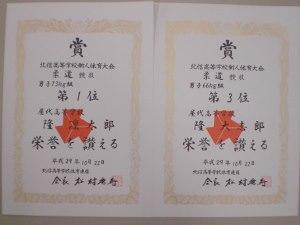 賞
北信高等学校新人体育大会
柔道競技
男子73kg級
第1位
屋代高等学校
太郎
栄誉を讃える
平成29年10月22日
北信高等学校体育連盟
会長 松村
賞
北信高等学校新人体育大会
柔道競技
男子66kg級
第3位
屋代高等学校
志郎
栄誉を讃える
平成29年10月22日
北信高等学校体育連盟
会長 松村